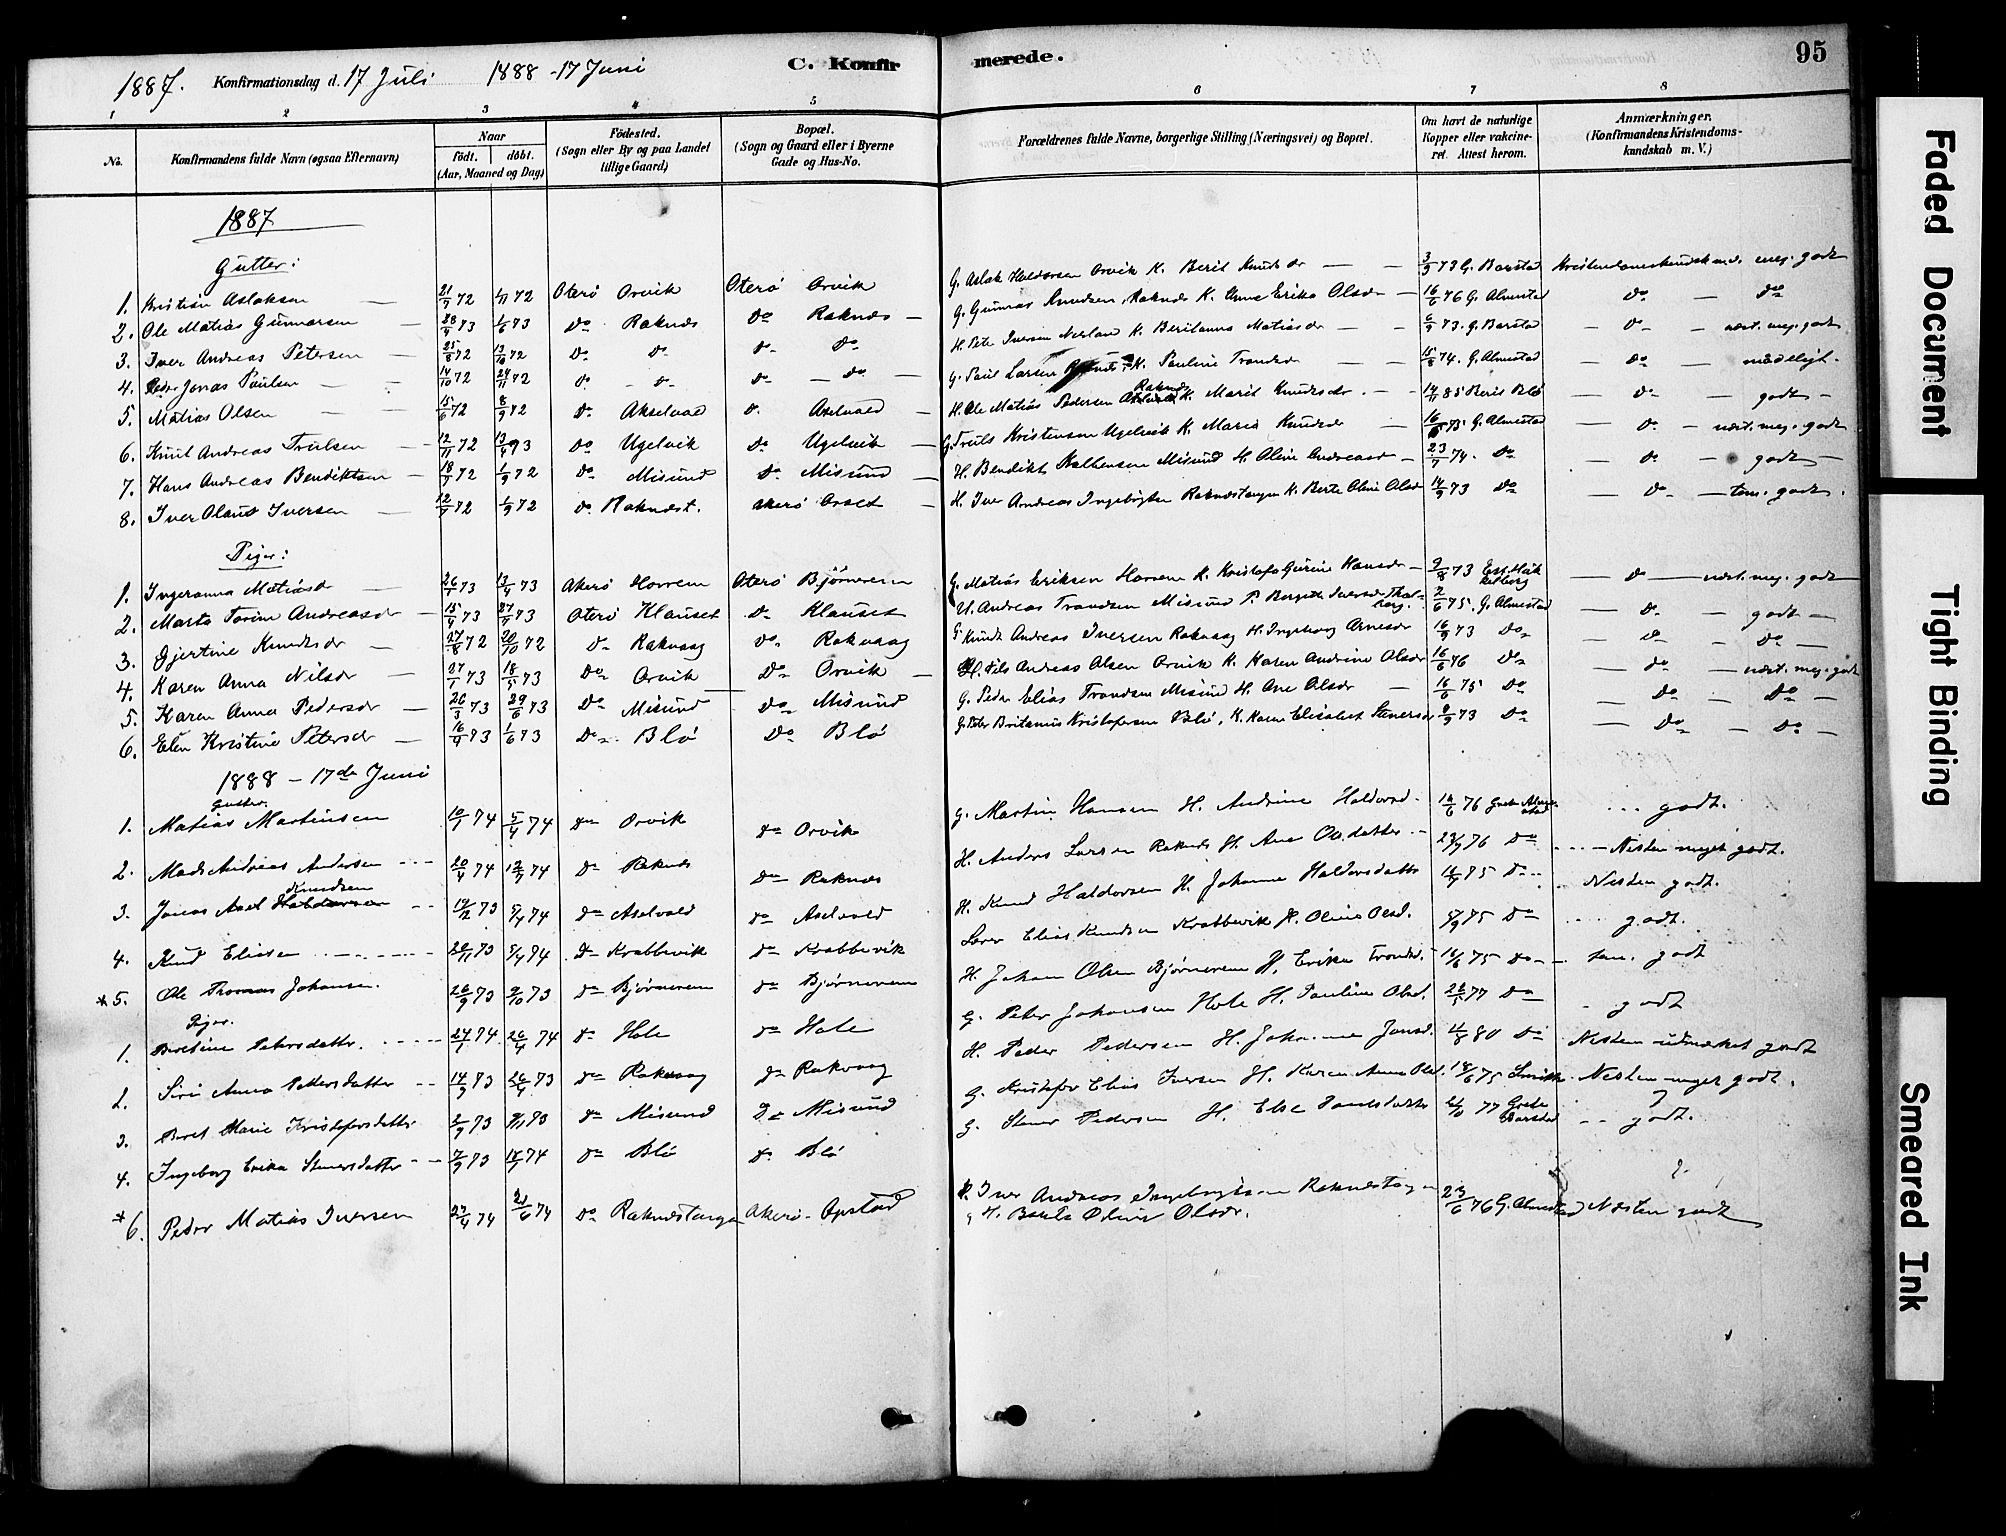 1887. Konfirmationsdag d. 17 Juli 1888 - 17 Juni C. Konfirmerede. 95
1 2 3 4 5 6 7 8
No. Konfirmandens fulde Navn (ogsaa Efternavn) Naar født. døbt. (Aar, Maaned og Dag) Fødested. (Sogn eller By og paa Landet tillige Gaard) Bopæl. (Sogn og Gaard eller i Byerne Gade og Hus-No. Forældrenes fulde Navne, borgerlige Stilling (Næringsvei) og Bopæl. Om havt de naturlige Kopper eller vakcineret. Attest herom. Anmærkninger. (Konfirmandens Kristendomskundskab m. V.)
1887
Gutter:
1. Kristian Aslaksen 21/9 72 1/11 72 Oterø Orvik Oterø Orvik G. Aslak Haldorsen Orvik K. Berit Knudsdr 3/9 73 G. Barstad Kristendomskundskab meg. godt
2. Ole Matias Gunnarsen 28/4 73 1/6 73 Do Raknæs Do Raknæs G. Gunnar Knudsen Raknæs K. Anne Erika Olsdr 16/6 76 G. Almestad Do Do
3. Iver Andreas Petersen 25/8 72 13/10 72 Do Do Do Do H. Peter Iversen K. Beritanna Matiasdr 6/9 73. G. Barstad Do næst. meg. godt
4. Peder Jonas Paulsen 14/10 72 24/11 72 Do Do Do Do G. Paul Larsen K. Pauline Trondsdr 15/8 74. G. Almestad Do maadeligt.
5. Matias Olsen 15/6 72 8/9 72 Do Akselvold Do Aselvold H. Ole Matias Pedersen Raknæs K. Marit Knudsdr. 14/11 85 Berit Blø Do godt
6. Knut Andreas Trulsen 12/11 72 13/4 73 Do Ugelvik Do Ugelvik G. Truls Kristensen Ugelvik K. Maria Knudsdr 16/6 75 G. Almestad Do næst. meg. godt
7. Hans Andreas Bendiktsen 18/7 72 1/9 72 Do Misund Do Misund H. Bendikt Misund H. Oline Andreasd 23/7 74. Do Do godt
8. Iver Olaus Iversen 12/7 72 1/9 72 Do Raknæst. Akerø Orset H. Iver Andreas Ingebrigtsen Raknæstangen K. Berte Oline Olsdr 14/9 73 Do Do tem. godt.
Piger:
1. Ingeranna Matiasdr 26/1 73 13/4 73 Akerø Horrem Oterø Bjørnerem G. Matias Eriksen Horrem K. Kristofa Gurine Hansdr 9/8 73 Do næst. meg. godt
2. Marta Torine Andreasdr 15/4 73 27/7 73 Oterø Klauset Do Klauset U. Andreas Trondsen Misund P. Bergitte Iversdr 2/6 75. G. Almestad Do godt
3. Gjertine Knudsdr 27/8 72 20/10 72 Do Rakvaag Do Rakvaag G. Knud Andreas Iversen Rakvaag H. Ingeborg Arnesdr 16/9 73 Do Do Do
4. Karen Anna Nilsdr 27/1 73 18/5 73 Do Orvik Do Orvik Nils Andreas Olsen Orvik K. Karen Andrine Olsdr 16/6 76 Do Do næst. meg. godt
5. Karen Anna Pedersdr 26/3 73 29/6 73 Do Misund Do Misund G. Peder Elias Trondsen Misund H. Ane Olsdr 16/6 75 Do Do Do
6. Elen Kristine Petersdr 16/4 73 1/6 73 Do Blø Do Blø G. Peter Britanus Kristofersen Blø, K. Karen Elisabet Stenersdr 9/9 73 Do Do Do
1888 - 17de Juni
Gutter.
1. Matias Martinsen 10/1 74 5/4 74 Do Orvik Do Orvik G. Martin Hansen H. Andrine Haldorsd. 14/6 76 Grete Almestad godt.
2. Mads Andreas Andersen 20/4 74 12/7 74 Do Raknæs Do Raknæs H. Anders Larsen Raknæs H. Ane Olsdatter 27/9 76 Do Nesten meget godt.
3. Jonas Axel Haldorsen Knudsen 19/12 73 5/4 74 Do Aselvold Do Aselvold H. Knud Haldorsen H. Johanne Haldorsdatter 14/9 75 Do Nesten godt.
4. Knud Eliasen 20/11 73 5/4 74 Do Krabbevik Do Krabbevik Elias Knudsen Krabbevik H. Oline Olsd. 5/9 75 Do godt.
*5. Ole Thomas Johansen. 26/9 73 9/10 73 Do Bjørnerem Do Bjørnerem H. Johan Olsen Bjørnerem H. Erika Trondsd. 16/6 75 Do tem. godt
Piger.
1. Beretine Petersdatter. 27/1 74 26/4 74 Do Hole Do Hole G. Peter Johansen Hole H. Pauline Olsd. 26/5 77 Do godt
2. Siri Anna Pedersdatter 14/3 73 26/4 73 Do Rakvaag Do Rakvaag H. Peder Pedersen H. Johanne Jonsd. 4/8 80 Do Nesten udmærket godt
3. Beret Marie Kristofersdatter 2/9 73 9/11 73 Do Misund Do Misund G. Kristofer Elias Iversen H. Karen Anna Olsd. 14/6 75 Nesten meget godt.
4. Ingeborg Erika Stenersdatter 7/9 73 14/1 74 Do Blø Do Blø G. Stener Pedersen H. Else 2/10 77 Grete Barstad godt.
*6. Peder Matias Iversen 27/4 74 21/6 74 Do Raknæstangen Akerø Opstad H. Iver Andreas Ingebrigtsen Raknæstangen 23/6 76 G. Almestad Næsten godt
H. Berte Oline Olsdr.
Faded Document
Tight Binding
Smeared Ink